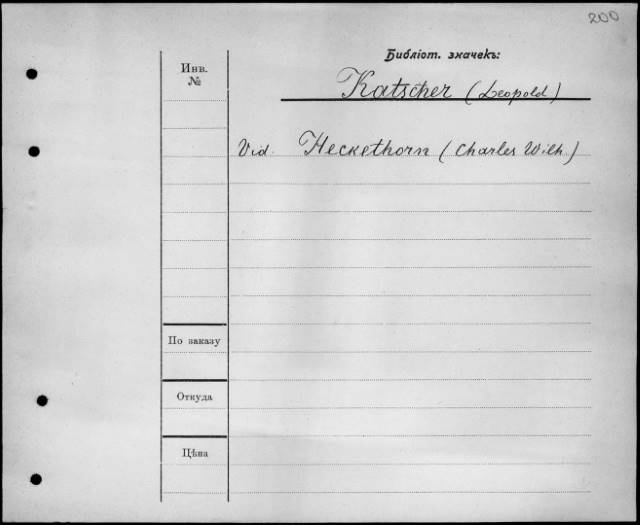 200
Библіот. значекъ:
Инв.
№
Katscher (Leopold)
Vid. Heckethorn (Charles Wilh.)
По заказу
Откуда
Цѣна